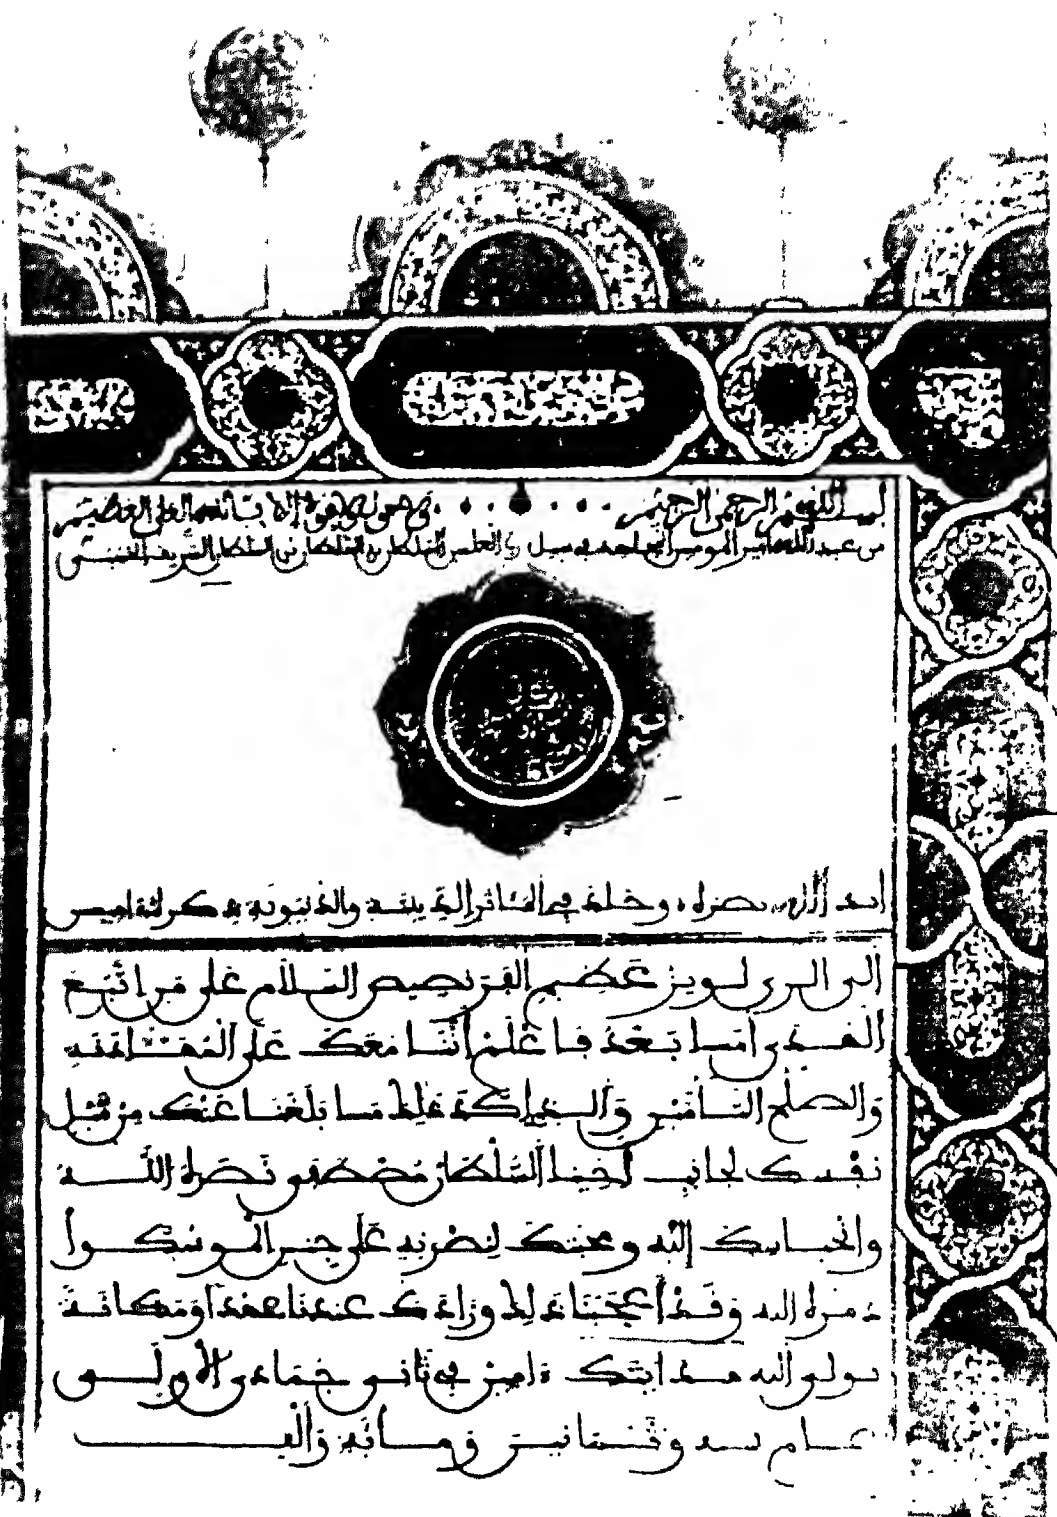 بسم الله الرحمن الرحيم ولا حول ولا قوة إلا بالله العلي العظيم
من عبد الله أمير المومنين المجاهد في سبيل رب العلمين السلطان بن السلطان بن السلطان الشريف الحسني
أيد الله نصره وخلد في المئاثر الدينية والدنيوية ذكره ءامين
إلى الري لويز عظيم الفرنصيص السلام على من اتبع
الهدى أما بعد فاعلم أننا معك على المهادنة
والصلح التامين وا على ما بلغنا عنك من قبل
نفسك لجانب أخينا السلطان مصطفى نصره الله
وانحيا إليه ومحبتك لنصرته على جنس الموسكوا
دمره الله وقد أعجبنا ذلك وزادك عندنا عهدا ومكانة
تولى الله هدايتك ءامين في ثاني جمادى الاولى
عام وثمانين ومائة وألف